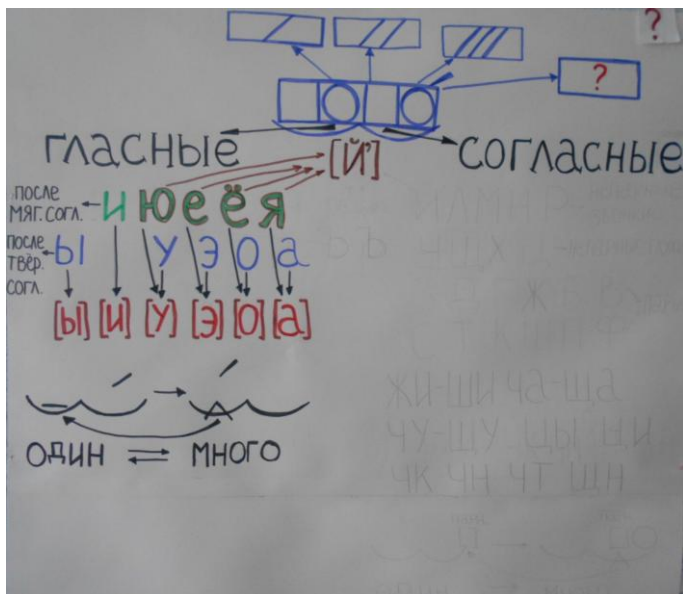 ?
?
гласные
[Й']
согласные
после
мяг. согл.
и ю е ё я
после
твёр.
согл.
ы у э о а
[ы] [и] [у] [э] [о] [а]
один ⇌ много
жи-ши ча-ща
чу-щу цы ци
чк чн чт щн